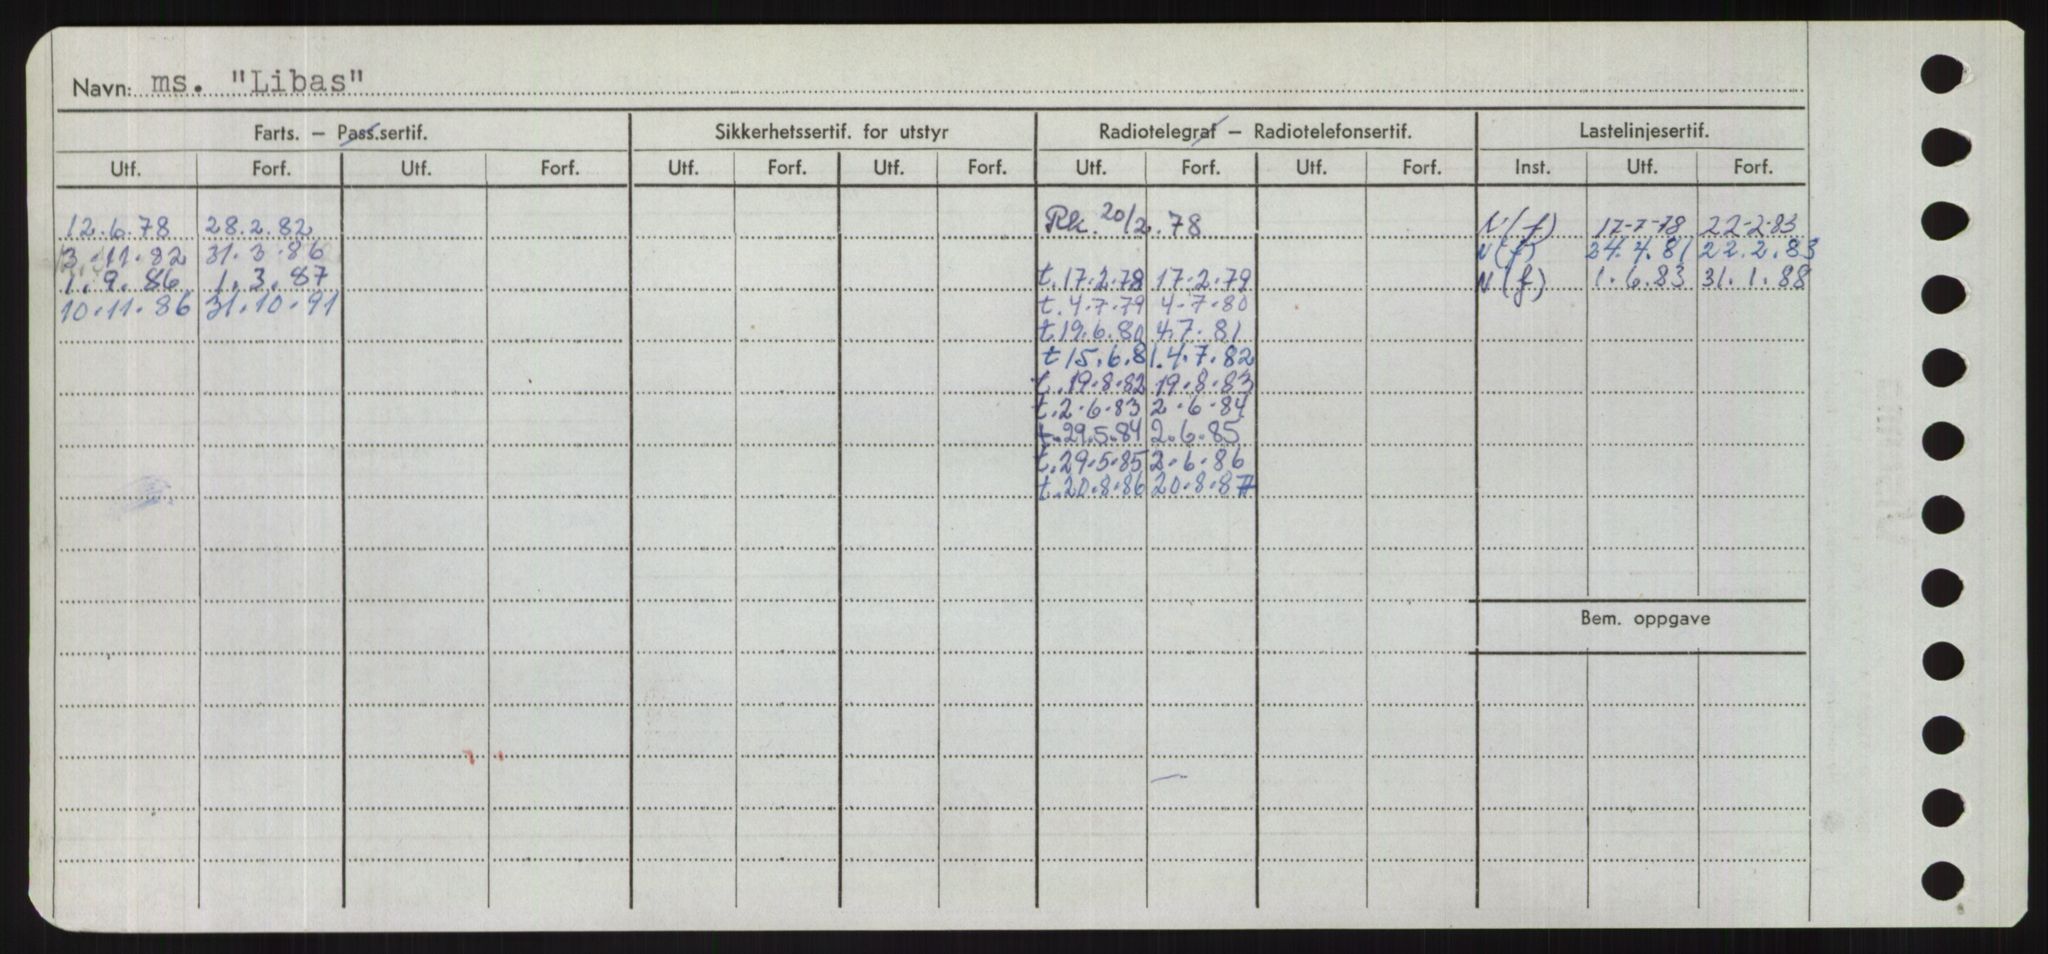 Navn: ms. "Libas"
Farts. — Pass.sertif. Sikkerhetssertif. for utstyr Radiotelegraf — Radiotelefonsertif. Lastelinjesertif.
Utf. Forf. Utf. Forf. Utf. Forf. Utf. Forf. Utf. Forf. Utf. Forf. Inst. Utf. Forf.
12.6.78 28.2.82 Rk. 20/2.78 N(f) 17-7-78 22-2-83
3.11.82 31.3.86 N(f) 24.4.81 22.2.83
1.9.86 1.3.87 t.17.2.78 17.2.79 N(f) 1.6.83 31.1.88
10.11.86 31.10.91 t.4.7.79 4-7-80
t.19.6.80 4.7.81
t 15.6.81. 4.7.82
t.19.8.82 19.8.83
t.2.6.83 2.6.84
t.29.5.84 2.6.85
t.29.5.85 2.6.86
t.20.8.86 20.8.87
Bem. oppgave